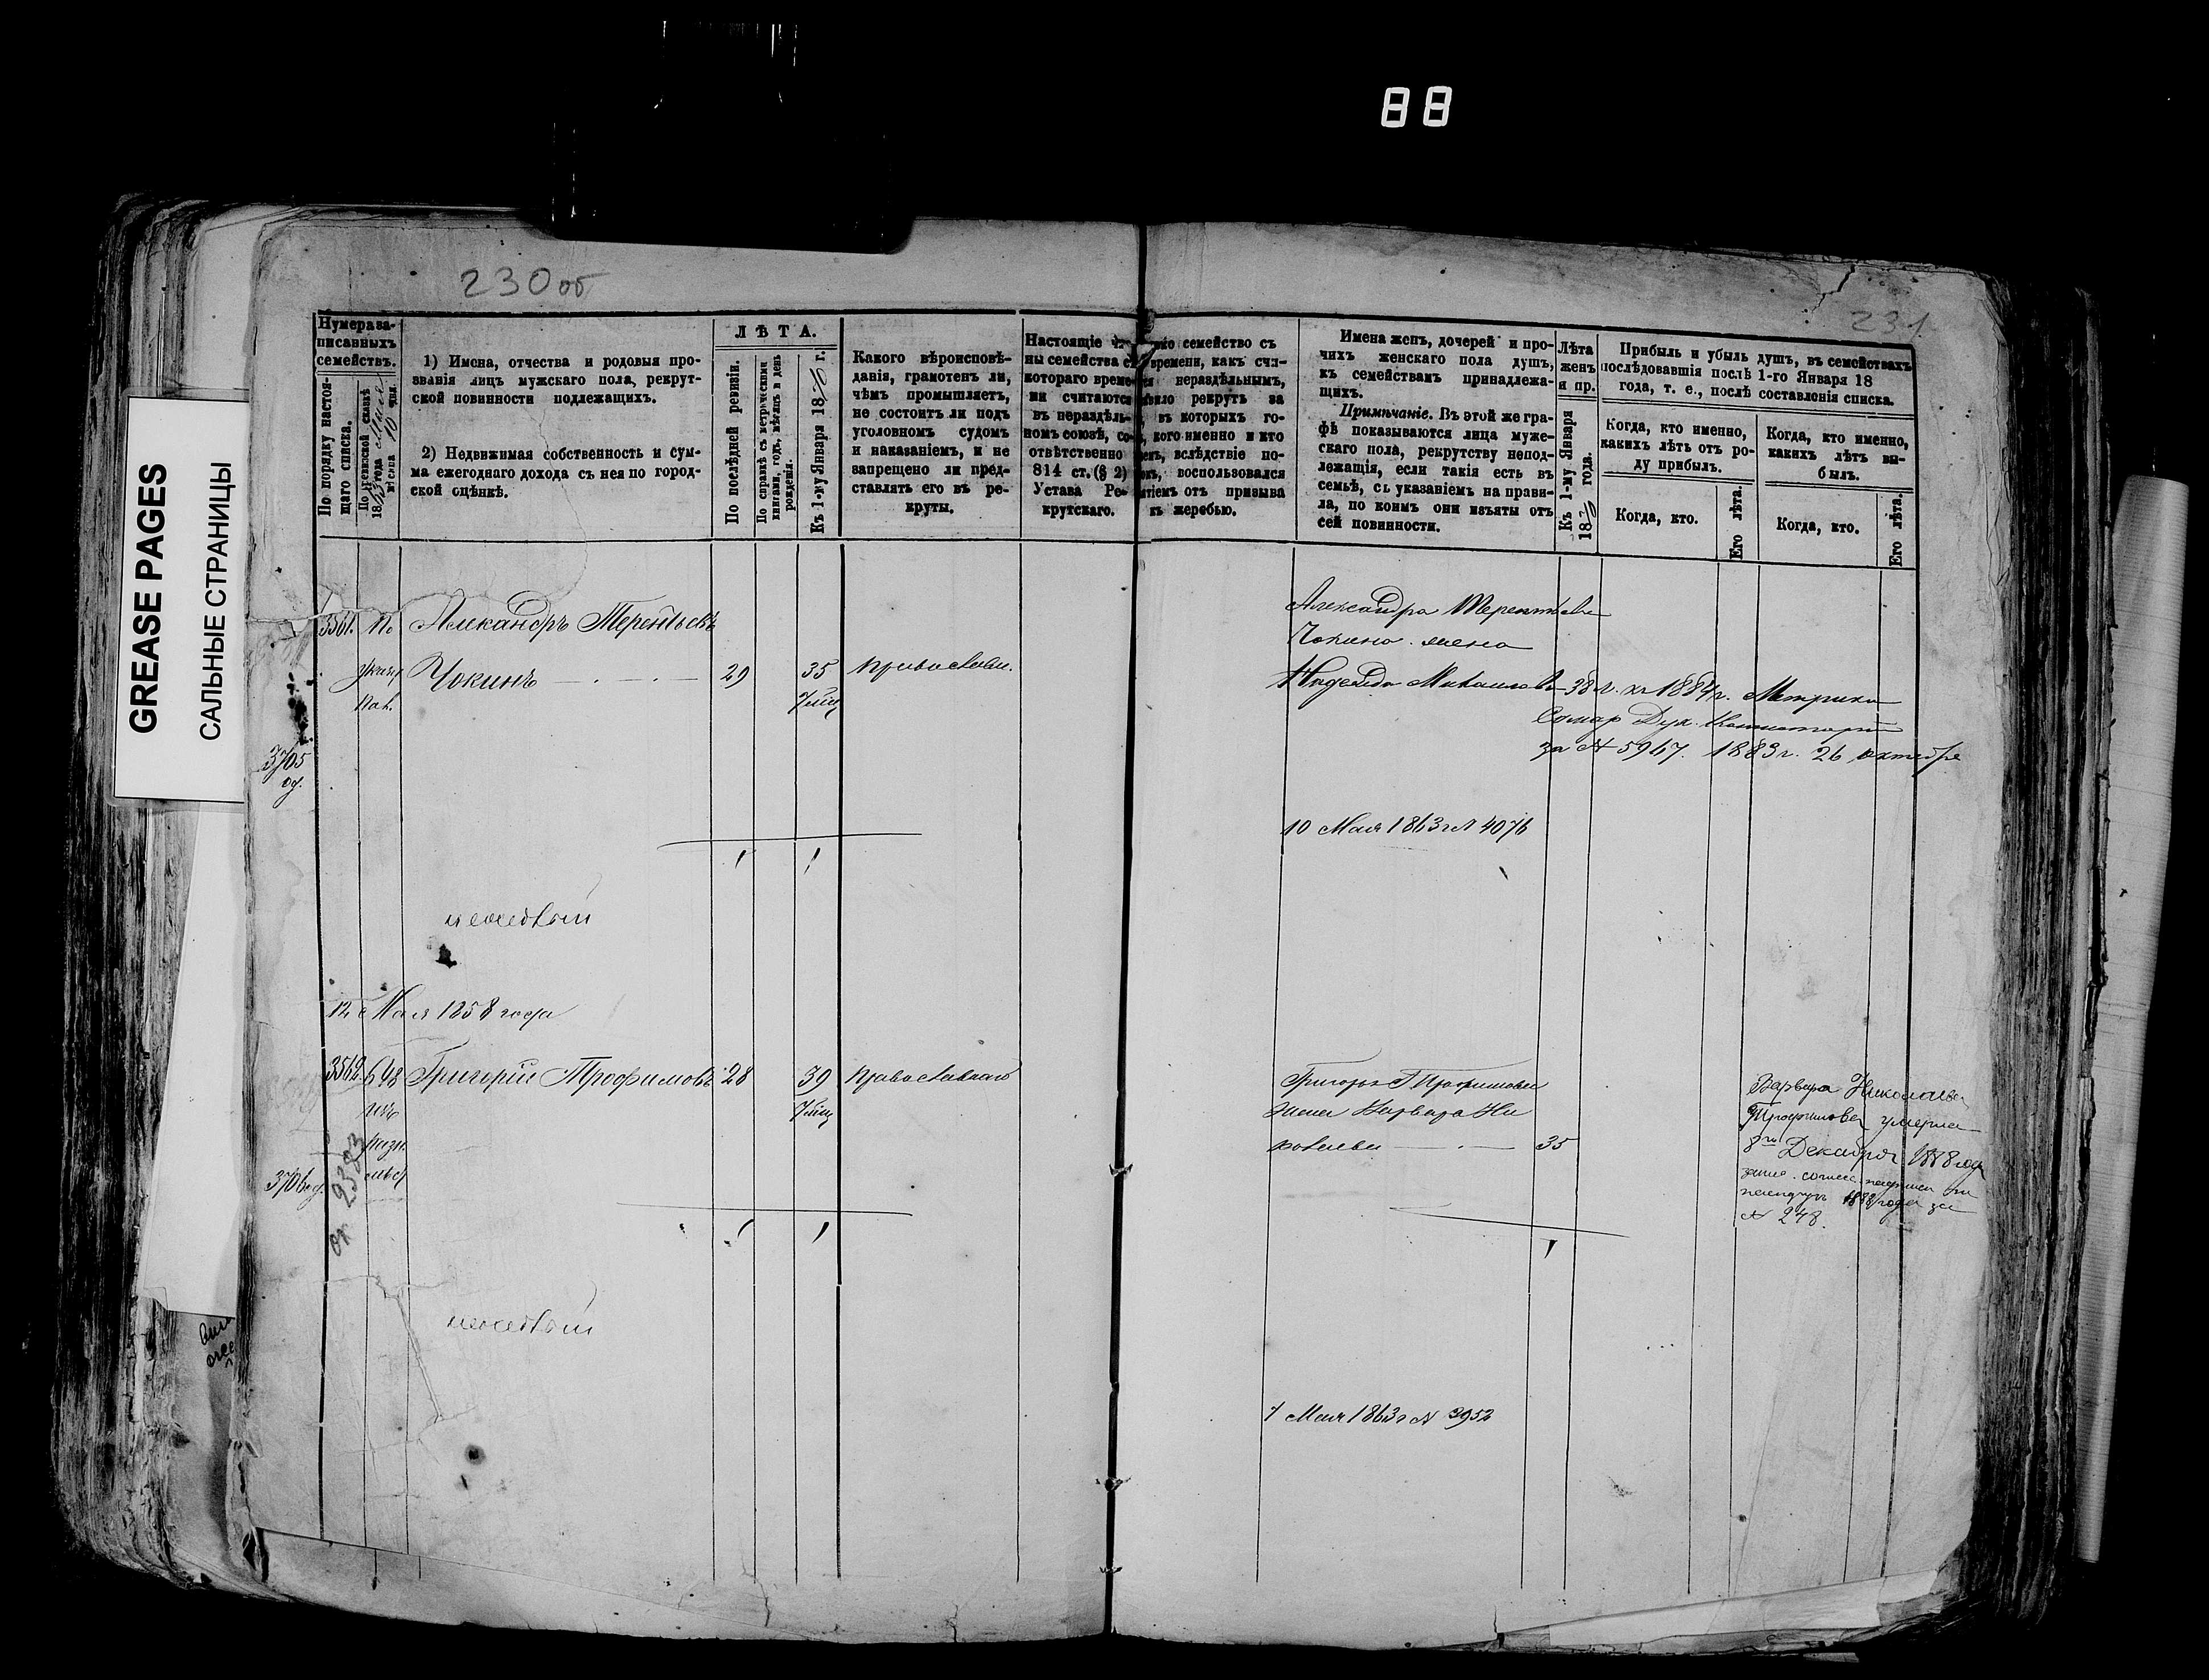 88
GREASE PAGES
САЛЬНЫЕ СТРАНИЦЫ
230 об
231
Нумера за-
писанныхъ
семействъ.
По порядку настоя-
щаго списка.
По ревизской сказкѣ
18 года
мѣсяца 10 дня.
1) Имена, отчества и родовыя про-
званія лицъ мужскаго пола, рекрут-
ской повинности подлежащихъ.
2) Недвижимая собственность и сум-
ма ежегоднаго дохода съ нея по город-
ской оцѣнкѣ.
ЛѢТА.
По послѣдней ревизіи.
По справкѣ съ метрическими
книгами, годъ, мѣсяцъ и день
рожденія.
Къ 1-му Января 18 г.
Какого вѣроисповѣ-
данія, грамотенъ ли,
чѣмъ промышляетъ,
не состоитъ ли подъ
уголовномъ судомъ
и наказаніемъ, и не
запрещено ли пред-
ставлять его въ ре-
круты.
Настоящіе
ны семейства
котораго време-
ни считаются
въ нераздѣль-
номъ союзѣ, со-
отвѣтственно
814 ст. (§ 2)
Устава Ре-
крутскаго.
семейство съ
времени, какъ счи-
нераздѣльнымъ,
рекрутъ за
въ которыхъ го-
кого именно и кто
вслѣдствіе по-
воспользовался
отъ призыва
къ жеребью.
Имена женъ, дочерей и про-
чихъ женскаго пола душъ,
къ семействамъ принадлежа-
щихъ.
Примѣчаніе. Въ этой же гра-
фѣ показываются лица муже-
скаго пола, рекрутству непод-
лежащія, если такія есть въ
семьѣ, съ указаніемъ на прави-
ла, по коимъ они изъяты отъ
сей повинности.
Лѣта
женъ
и пр.
Къ 1-му Января
18 года.
Прибыль и убыль душъ, въ семействахъ
послѣдовавшія послѣ 1-го Января 18
года, т. е., послѣ составленія списка.
Когда, кто именно,
какихъ лѣтъ отъ ро-
ду прибылъ.
Когда, кто именно,
какихъ лѣтъ вы-
былъ.
Когда, кто.
Его лѣта.
Когда, кто.
Его лѣта.
3561. По Александръ Терентьевъ
Чокинъ 29 35 православн.
3705
Александра Терентьева
Чокина жена
Надежда Михайлова 38 л. къ 1884 г. Метрика
Самар Дух. Консисторіи
за № 5967. 1883 г. 26 октября
10 Мая 1863 г № 4076
12 Мая 1858 года
3562. 648 Григорій Трофимовъ 28 39 православнаго
изъ
3706
2383
Григорья Трофимова
жена Варвара Ни
колаева 35
Варвара Николаева
Трофимова умерла
Декабря 1888 года
1888 года за
№ 248.
7 Мая 1863 г № 3952